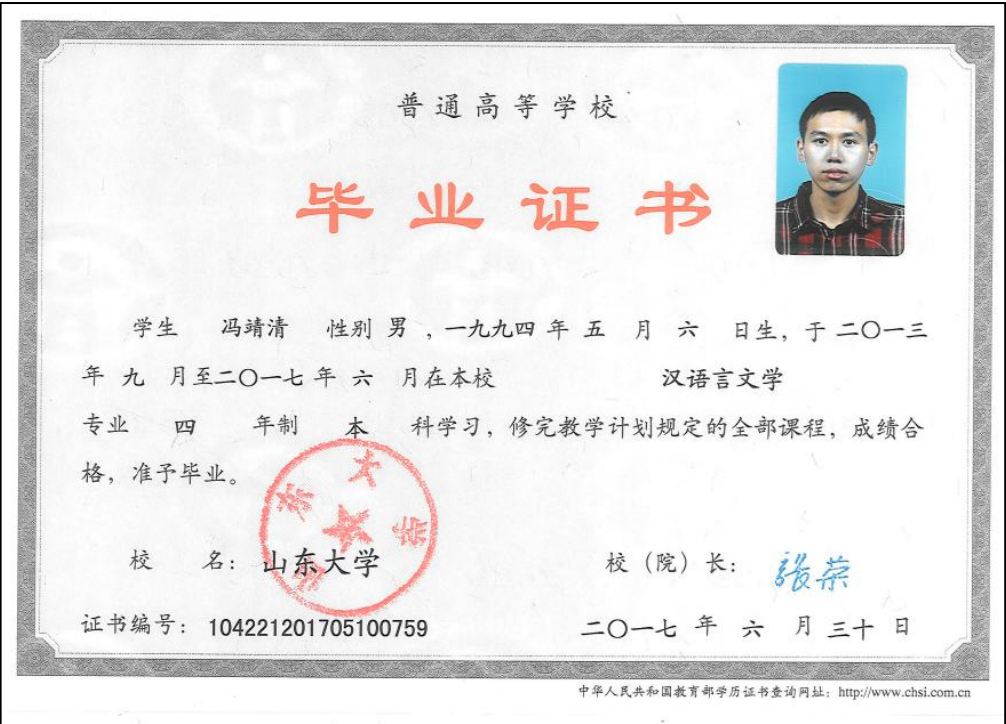 普通高等学校
毕业证书
学生 冯靖清 性别 男 ，一九九四 年 五 月 六 日生，于 二〇一三
年 九 月至二〇一七 年 六 月在本校 汉语言文学
专业 四 年制 本 科学习，修完教学计划规定的全部课程，成绩合
格，准予毕业。
山东大学
校 名：山东大学 校（院）长：張荣
证书编号：104221201705100759 二〇一七 年 六 月 三十 日
中华人民共和国教育部学历证书查询网址：http://www.chsi.com.cn